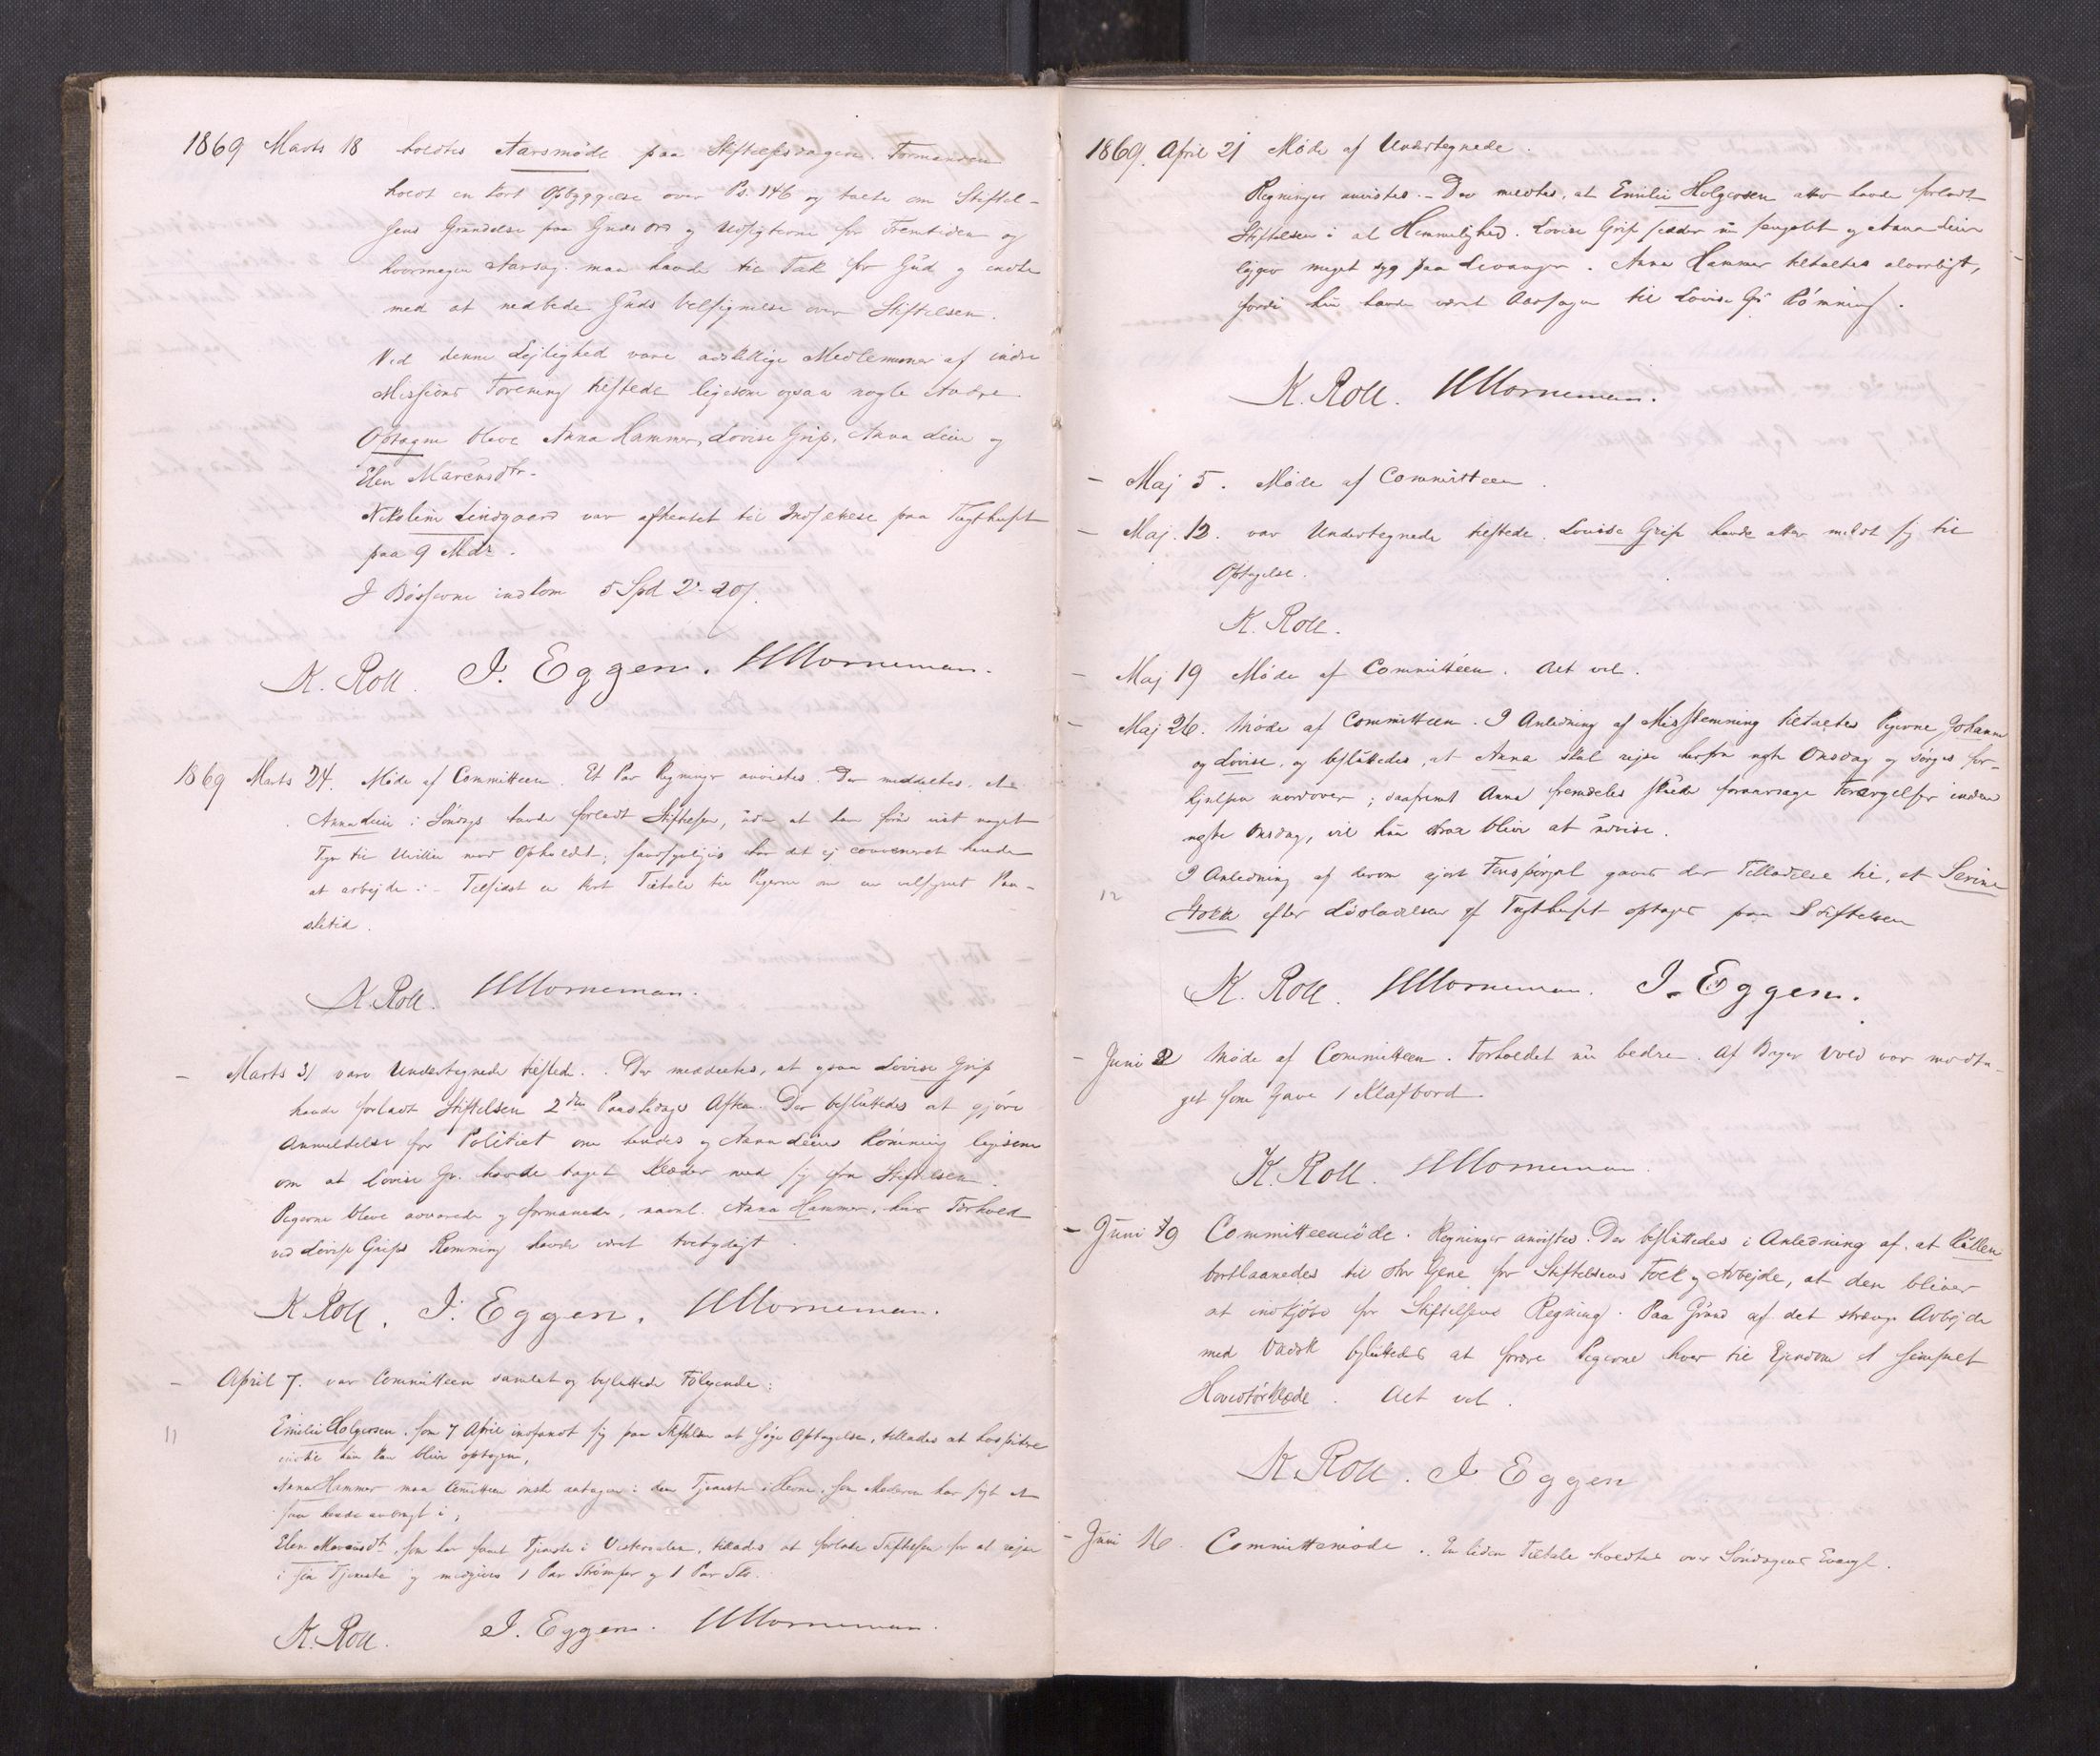 1869 Marts 18 holdtes Aarsmöde paa Stiftelsesdagen. Formanden
holdt en kort Opbyggelse over Ps. 146 og talte om Stiftel-
sens Grundelse paa Guds Ord og Udsigterne for Fremtiden og
hvormegen Aarsag man havde til Tak for Gud og endte
med at nedbede Guds Velsignelse over Stiftelsen.
Ved denne Lejlighed vare adskillige Medlemmer af indre
Missions Forening tilstede ligesom ogsaa nogle Andre.
Optagne bleve Anna Hammer, Lovise Grip, Anna Lein og
Elen Marensdtr.
Nikoline Lindgaard var afhentet til Indsættelse paa Tugthuset
paa 9 Mdr.
I Bösserne indkom 5 Spd 2 20
K. Roll. I. Eggen. Hornemann.
1869 Marts 24. Möde af Committeen. Et Par Regninger anvistes. Der meddeltes, at
Anna Lein i Söndags havde forladt Stiftelsen, uden at have förud vist noget
Tegn til Uvillie mod Opholdet; sandsynligvis har det ej conveneret hende
at arbejde. - Tilsidst en kort Tiltale til Pigerne om en velsignet Paa-
sketid.
K. Roll. Hornemann.
- Marts 31 vare Undertegnede tilstede. Der meddeltes, at ogsaa Lovise Grip
havde forladt Stiftelsen 2den Paaskedags Aften. Der besluttedes at gjöre
Anmeldelse for Politiet om hendes og Anna Leins Römning ligesom
om at Lovise Gr. havde taget Klæder med sig fra Stiftelsen.
Pigerne bleve advarede og formanede, navnl. Anna Hammer, hvis Forhold
ved Lovise Grips Römning havde været tvetydigt.
K. Roll. I. Eggen. Hornemann.
- April 7. var Committeen samlet og besluttede Fölgende:
11 Emilie Holgersen, som 7 April indfandt sig paa Stiftelsen at söge Optagelse, tillades at hospitere
indtil hun kan blive optagen,
Anna Hammer maa Comitteen önske antagen i den Tjeneste i Hevne, som Moderen har sögt at
faa hende anbragt i,
Elen Marensdt., som har faaet Tjeneste i Vesteraalen, tillades at forlade Stiftelsen for at rejse
i sin Tjeneste og medgives 1 Par Strömper og 1 Par Sko.
K. Roll. I. Eggen. Hornemann.
1869. April 21 Möde af Undertegnede.
Regninger anvistes. - Der meldtes, at Emilie Holgersen atter havde forladt
Stiftelsen i al Hemmelighed. Lovise Grip sidder nu fængslet og Anna Lein
ligger meget syg paa Levanger. Anna Hammer tiltaltes alvorligt,
fordi hun havde været Aarsagen til Lovise G's Römning.
K. Roll. Hornemann.
- Maj 5. Möde af Committeen.
- Maj. 12. var Undertegnede tilstede. Lovise Grip havde atter meldt sig til
Optagelse.
K. Roll.
- Maj 19 Möde af Committéen. Alt vel.
- Maj 26. Möde af Committeen. I Anledning af Misstemning tiltaltes Pigerne Johanne
og Lovise, og besluttedes, at Anna skal rejse herfra næste Onsdag og sörges for-
hjulpen nordover; saafremt Anna fremdeles skulde foraarsage Forargelser inden
næste Onsdag, vil hun strax blive at udvise.
I Anledning af derom gjort Forespörgsel gaves der Tilladelse til, at Serine
12 Stokk efter Lösladelsen af Tugthuset optages paa Stiftelsen
K. Roll. Hornemann. I. Eggen.
- Juni 2 Möde af Committeen. Forholdet nu bedre. Af Bager Vold var modta-
get som Gave 1 Klafbord.
K. Roll. Hornemann.
- Juni 9 Committeemöde. Regninger anvistes. Der besluttedes i Anledning af, at Rullen
bortlaanedes til Gene for Stiftelsens Folk og Arbejde, at den bliver
at indkjöbe for Stiftelsens Regning. Paa Grund af det strænge Arbejde
med Vadsk besluttedes at forære Pigerne hver til Ejendom et simpelt
Hovedtörklæde. Alt vel.
K. Roll. I. Eggen
- Juni 16. Committemöde. En liden Tiltale holdtes over Söndagens Evangl.